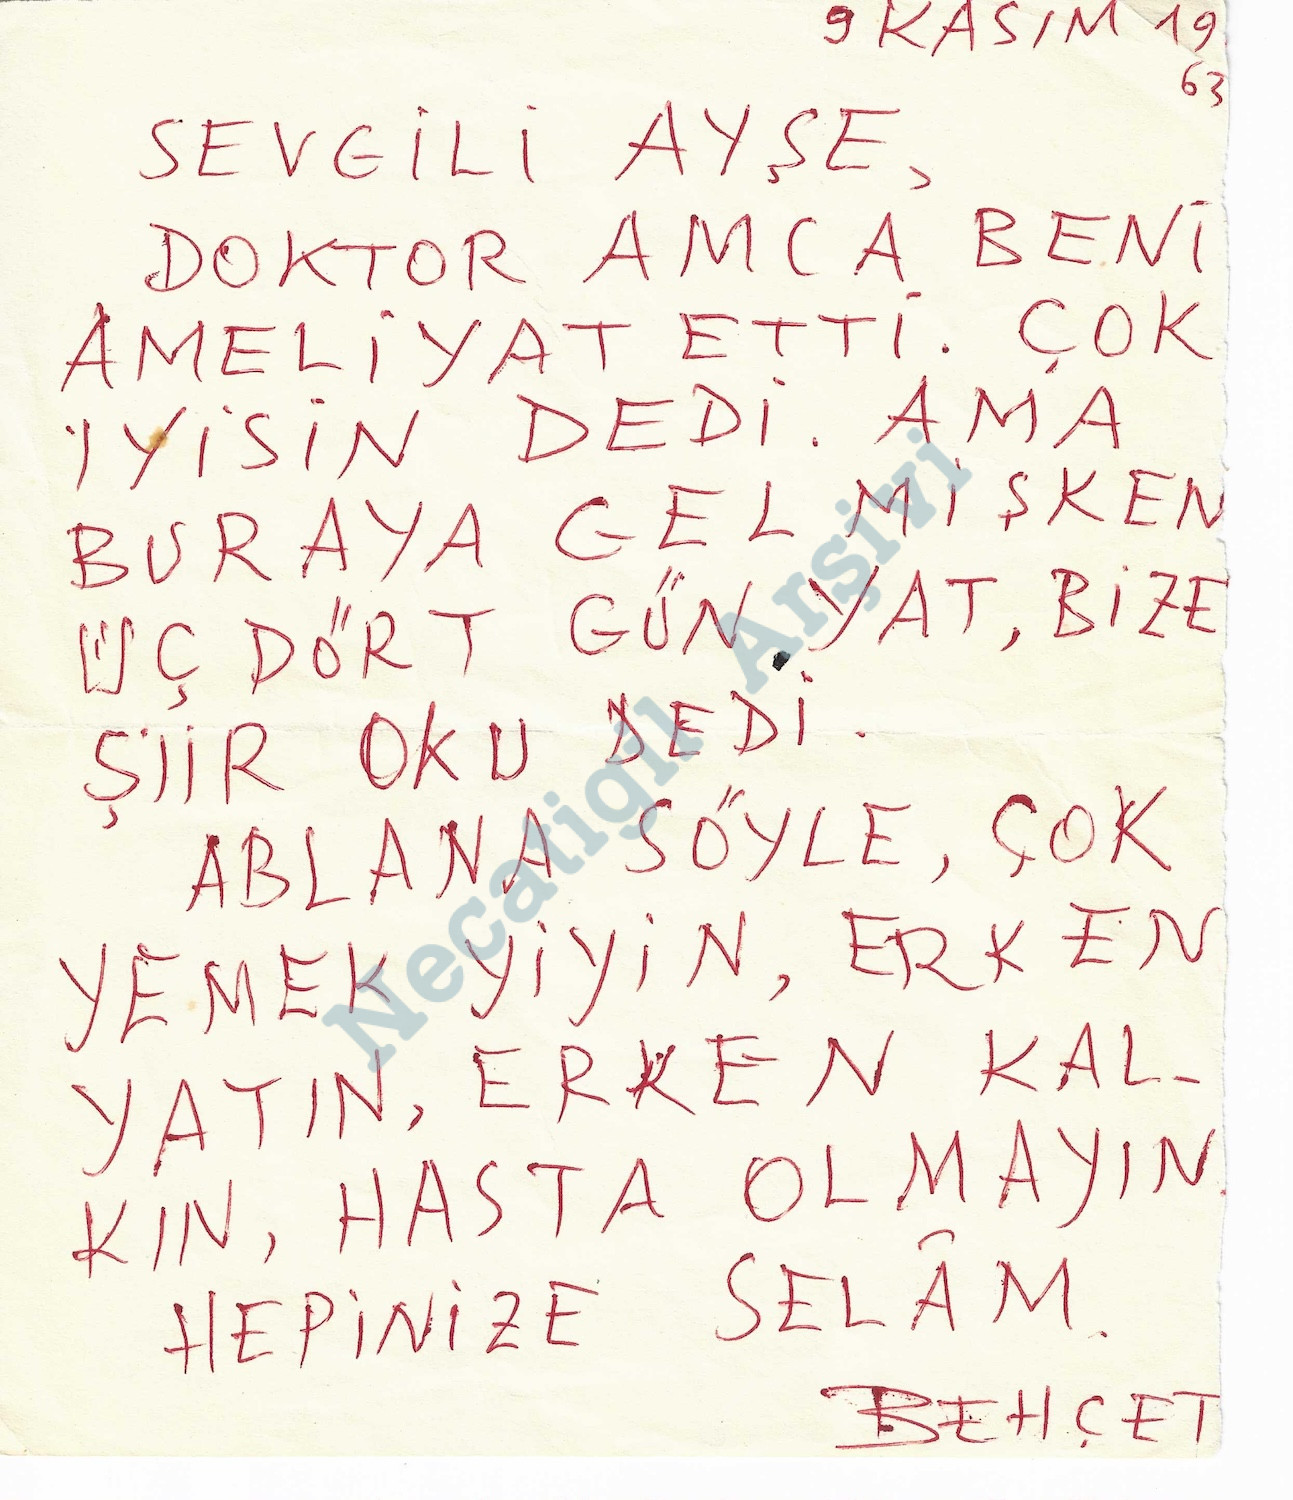 9 KASIM 19
63
SEVGİLİ AYŞE,
DOKTOR AMCA BENİ
AMELİYAT ETTİ. ÇOK
İYİSİN DEDİ. AMA
BURAYA GELMİŞKEN
ÜÇ DÖRT GÜN YAT, BİZE
ŞİİR OKU DEDİ.
ABLANA SÖYLE, ÇOK
YEMEK YİYİN, ERKEN
YATIN, ERKEN KAL-
KIN, HASTA OLMAYIN.
HEPİNİZE SELÂM.
BEHÇET
Necatigil Arşivi